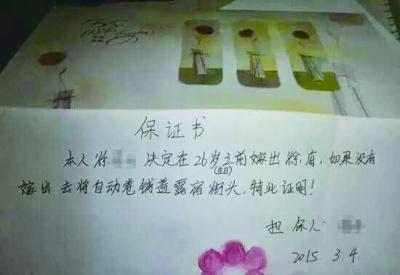 保证书
本人徐 决定在26岁之前嫁出徐府,如果没有
(生日)
嫁出去将自动卷铺盖露宿街头,特此证明!
担保人:
2015 3.4